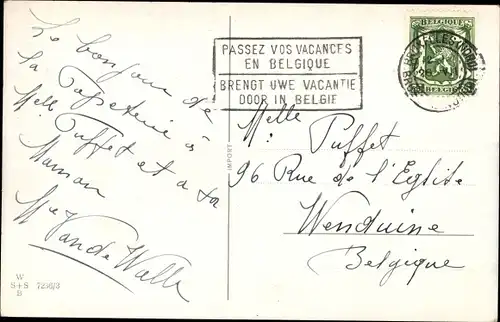 Le bonjour de
la Papeterie à
Melle Puffet et à ta
Maman
Me Van de Walle
W
S+S
B
7236/3
IMPORT
PASSEZ VOS VACANCES
EN BELGIQUE
BRENGT UWE VACANTIE
DOOR IN BELGIE
BELGIQUE
BELGIE
Melle Puffet
96 Rue de l'Eglise
Wenduine
Belgique